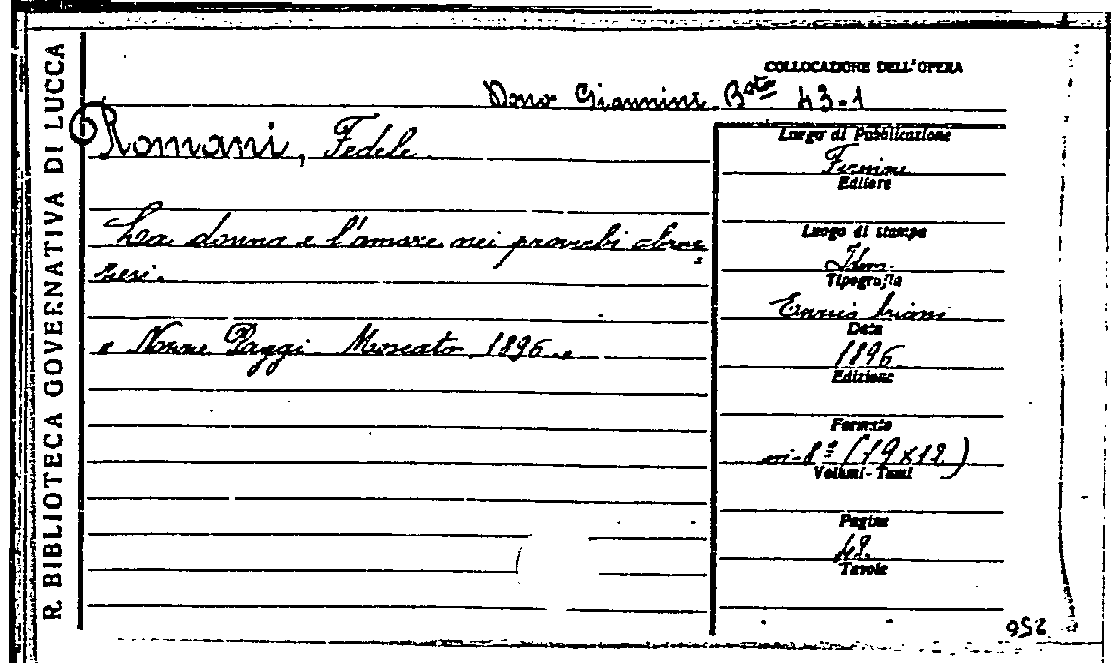 R. BIBLIOTECA GOVERNATIVA DI LUCCA
COLLOCAZIONE DELL'OPERA
Dono Giannini. Bsta 43-1
Romani, Fedele
La donna e l'amore nei proverbi abruz
zesi.
" Nozze Paggi - Moscato 1896 "
Luogo di Pubblicazione
Firenze
Editore
Luogo di stampa
Idem
Tipografia
Ennio Ariani
Data
1896
Edizione
Formato
in-8º (19x12)
Volumi - Tomi
Pagine
42
Tavole
256